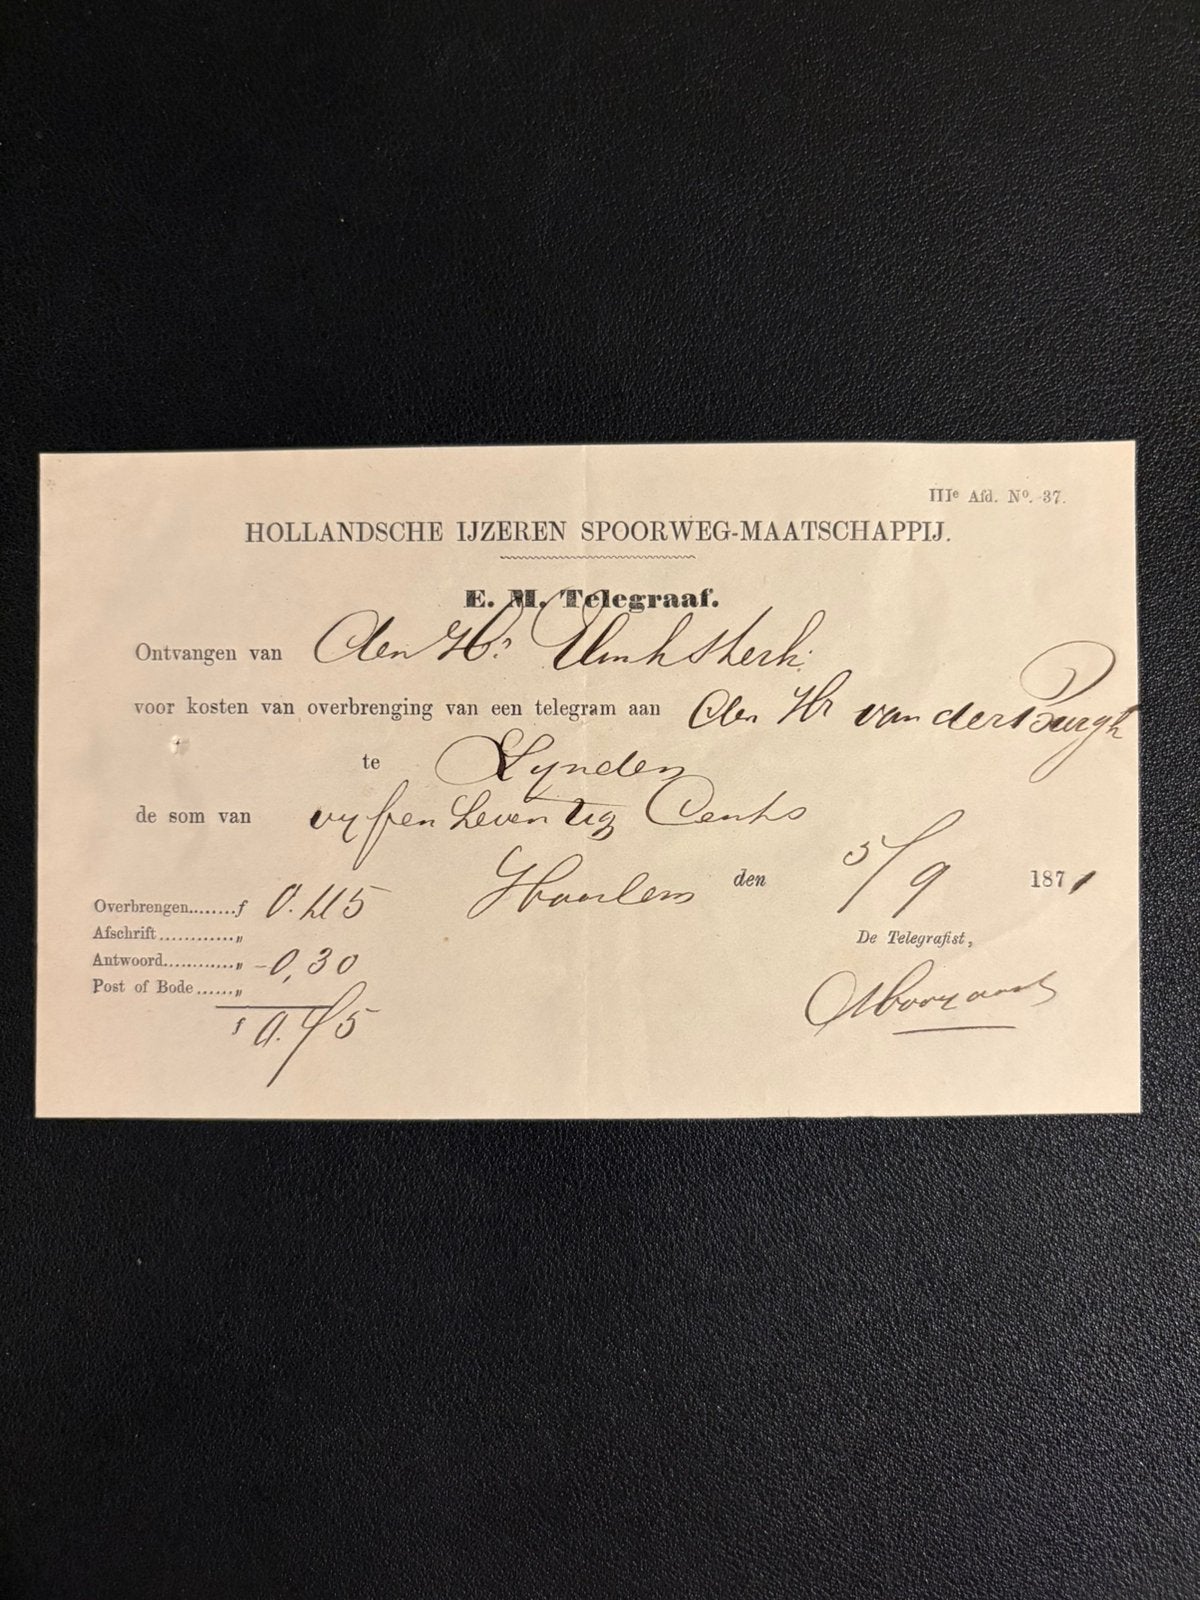 IIIe Afd. No. 37.
HOLLANDSCHE IJZEREN SPOORWEG-MAATSCHAPPIJ.
E. M. Telegraaf.
Ontvangen van den Hr
voor kosten van overbrenging van een telegram aan den Hr van der Burgh
te Lynden
de som van vyf en Zeventig Cents
Haarlem den 5/9 1871
Overbrengen........f 0.45
Afschrift............„
Antwoord...........„ -0,30
Post of Bode......„
f 0.75
De Telegrafist,